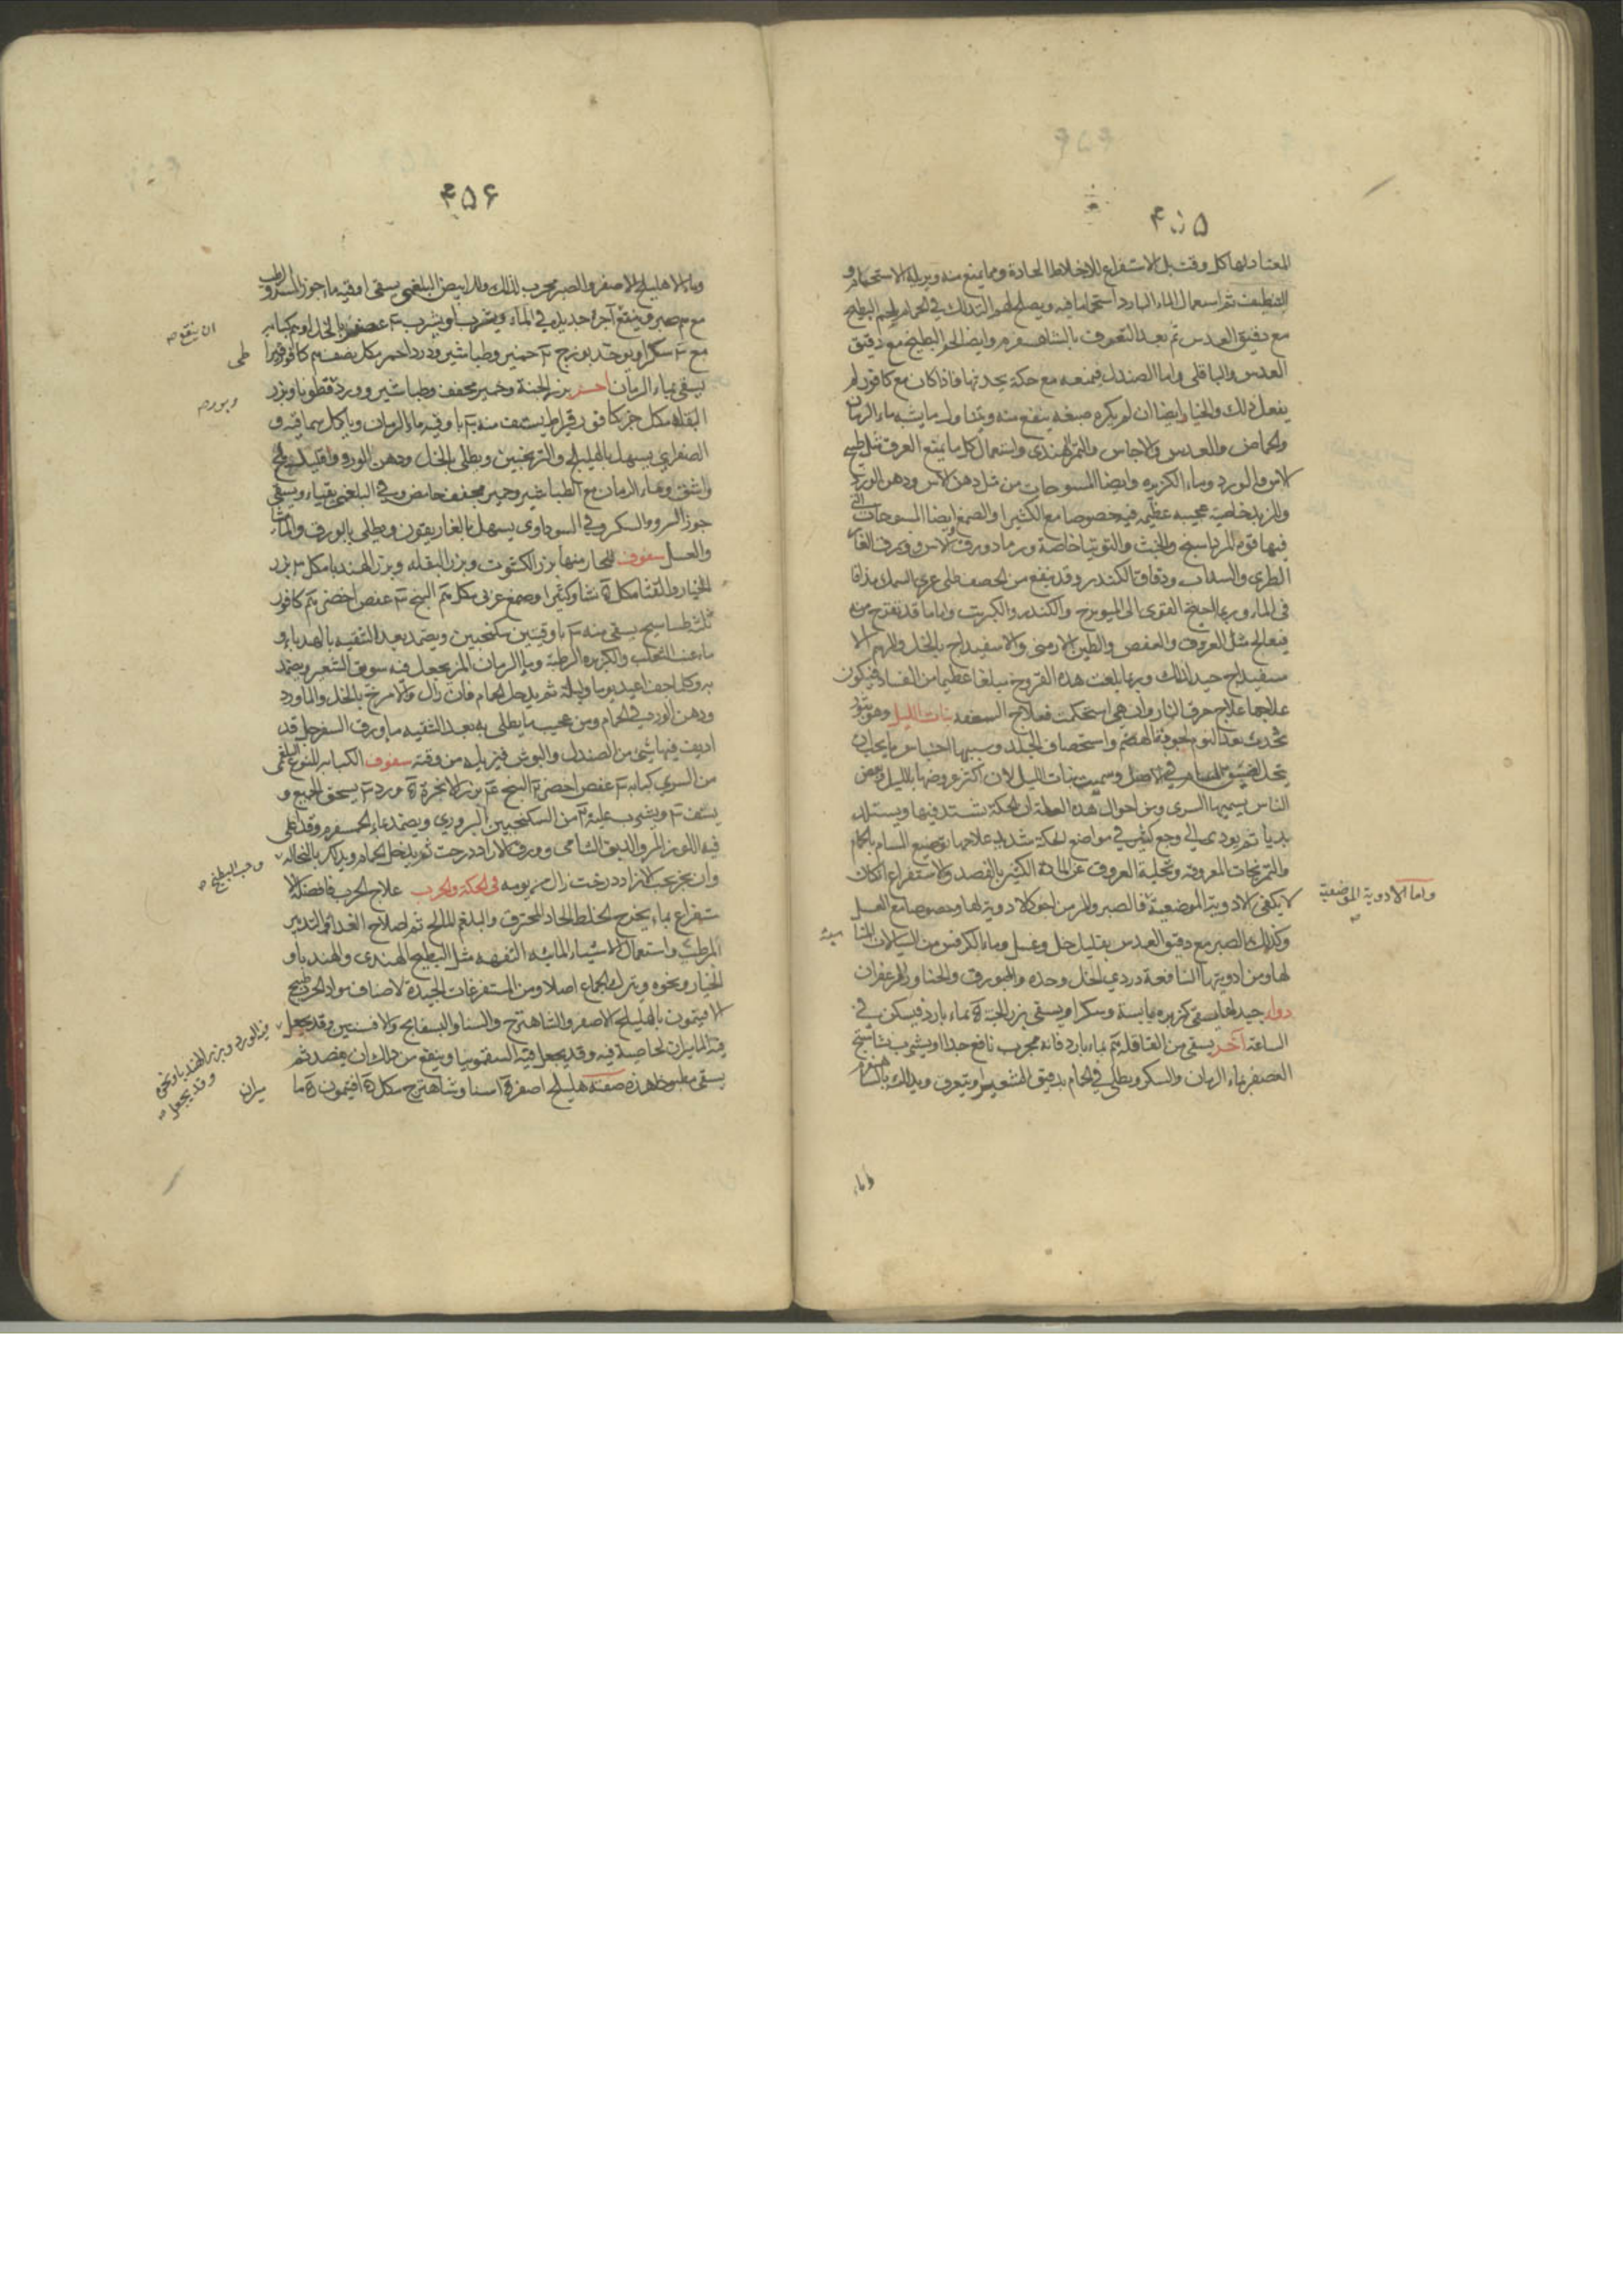 ۴۵۵
المعتاد لها كل وقت بل الاستفراغ للاخلاط الحادة ومما يمنع منه ويزيله الاستحمام و
التنظيف ثم استعمال الماء البارد استحماما فيه ويصلح لهم التدلك في الحمام بلحم البطيخ
مع دقيق العدس ثم بعد التعرق بالشاهسفرم وايضا لحم البطيخ مع دقيق
العدس والباقلى واما الصندل فيمنعه مع حكة يحدثها فاذا كان مع كافور لم
يفعل ذلك والحنا ايضا ان لم يكره صبغه ينفع منه ويتناول ما يشبه ماء الرمان
والحماض والعدس والاجاص والتمر الهندى واستعمال كل ما يمنع العرق مثل طبيخ
الاس والورد وماء الكزبره وايضا المسوحات من مثل دهن الاس ودهن الورد
وللزبد خاصية عجيبه عظيمه فيه خصوصا مع الكثيرا والصمغ ايضا المسوحات التى
فيها قوة المرداسنج والخبث والتوتيا خاصة ورماد ورق الاس وورق الغار
الطرى والسذاب ودقاق الكندر وقد ينفع من الحصف طلى غرى السمك مذابا
فى الماء وربما احتيج القوى الى الميويزج والكندر والكبريت واما ما قد تقرح منه
فيعالج مثل العروق والعفص والطين الارمنى والاسفيداج بالخل والمرهم الا
سفيداج جيد لذلك وربما بلغت هذه القروح مبلغا عظيما من الفساد فيكون
علاجها علاج حرق النار وان هى استحكمت فعلاج السعفه بنات الليل وهو بثور
تحدث بعد النوم لجودة الهضم واستحصاف الجلد وسببها احتباس ما يجب ان
يتحلل لضيق المسام فى الاصل وسميت بنات الليل لان اكثر عروضها بالليل وبعض
الناس يسميها السرى ومن احوال هذه العلة ان الحكة تشتد فيها ويستلذ
بديا ثم يودى الى وجع كثير في مواضع الحكة شديد علاجها توسيع المسام بالحمام
والتمريخات المعروفة وتخلية العروق عن المادة الكثيرة بالفصد والاستفراغ ان كان
لا يكفى الادوية الموضعية فالصبر والمر من اجود الادوية لها وخصوصا مع العسل
واما الادوية الموضعية
وكذلك الصبر مع دقيق العدس بقليل خل وعسل وماء الكرفس من السيالات المنا
سبة
لها ومن ادويتها النافعة دردي الخل وحده والبورق والحنا والزعفران
دواء جيد لها يسقى كزبره يابسة وسكرا ويسقى بزر الجبنة بماء بارد فيسكن فى
الساعة آخر يسقى من القاقلة بماء بارد فانه مجرب نافع جدا او يشرب نشاستج
العصفر بماء الرمان والسكر ويطلى في الحمام بدقيق الشعير او يتعرق ويدلك بالشاهسفرم
وماء
۴۵۶
وماء الاهليلج الاصفر والصبر مجرب لذلك وللابيض البلغمى يسقى اوقيه ماء جوز السرو الرطب
مع صبر وينقع آجرة جديدة في الماء ويشرب او يشرب عصفر بالخل او كبابه
ان ينقع
مع سكر او يوخذ بورج حمنين وطباشير وورد احمر مكل نصف كافور قيرا
طى
يسقى بماء الرمان آخر بزر الجبنة وخمير مجفف وطباشير وورد قطونا وبزر
وبورم
البقلة مكل جزء كافور قيراط يستف منه باوقيه ماء الرمان وياكل سماقيه و
الصفراوى يسهل بالهليلج والترنجبين ويطلى بالخل ودهن الورد وقليل ملح
واشق وماء الرمان مع الطباشير وخمير مجفف حامض وفى البلغمى يقياء ويسقى
جوز السرو والسكر وفى السوداوى يسهل بالغاريقون ويطلى بالبورق والماء
والعسل سفوف للحار منها بزر الكشوت وبزر البقلة وبزر الهندبا مكل بزر
الخيار والقثا مكل نشا وكثيرا وصمغ عربى مكل البنج عفص اخضر كافور
ثلث طساسيج يسقى منه باوقيتين سكنجبين ويضمد بعد التنقيه بالهندباء و
ماء عنب الثعلب والكزبره الرطبة وماء الرمان المز يجعل فيه سويق الشعير ويضمد
به وكلما جف اعيد يوما وليلة ثم يدخل الحمام فان زال والا مرخ بالخل والماورد
ودهن الورد فى الحمام ومن عجيب ما يطلى به بعد التنقيه ماء ورق السفرجل قد
اديف فيها شى من الصندل والبوش فيزيله من وقته سفوف الكبابه للنوع البلغمى
من السرى كبابه عفص اخضر البنج بزر الانجرة ورد يسحق الجميع و
يستف ويشرب عليه من السكنجبين البزورى ويضمد بماء الحمسفرم وقد اغلى
فيه اللوز المر والدبق الشامى وورق الازاددرخت ثم يدخل الحمام ويدلك بالنخاله
وحب البطيخ
وان مرخ بحب الازاددرخت زال من يومه فى الحكة والجرب علاج الجرب فافضله الا
ستفراغ بماء يخرج الخلط الحاد المحترق والبلغم المالح ثم اصلاح الغذاء والتدبير
المرطب واستعمال الاشياء المائيه التفهه مثل البطيخ الهندى والهندبا و
الخيار ونحوه ويترك الجماع اصلا ومن المستفرغات الجيدة لاصناف مواد الجرب طبيخ
الافيتمون بالهليلج الاصفر والشاهترج والسنا والبسفايج والافسنتين وقد يجعل
فيه الورد وبزر الهندبا ونحوه وقد يجعل
فيه الماميران لخاصية فيه وقد يجعل فيه السقمونيا وينفع من ذلك ان يفصد ثم
يسقى مطبوخا هذه صفته هليلج اصفر سنا وشاهترج مكل افيتمون ما
ميران